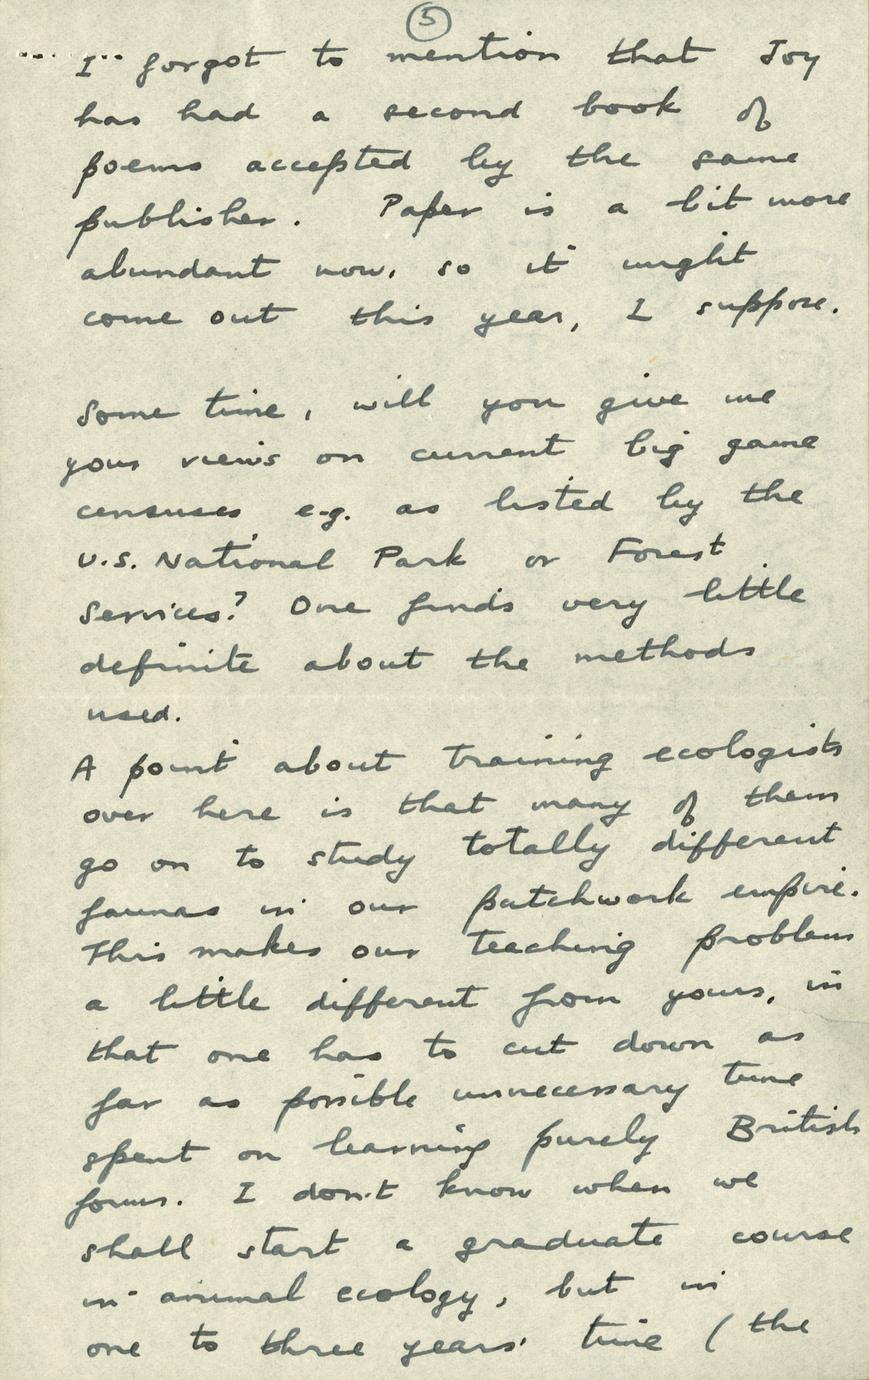 5
I forgot to mention that Joy
has had a second book of
poems accepted by the same
publisher. Paper is a bit more
abundant now, so it might
come out this year, I suppose.
Some time, will you give me
your views on current big game
censuses e.g. as listed by the
U.S. National Park or Forest
Services? One finds very little
definite about the methods
used.
A point about training ecologists
over here is that many of them
go on to study totally different
faunas in our patchwork empire.
This makes our teaching problem
a little different from yours, in
that one has to cut down as
far as possible unnecessary time
spent on learning purely British
forms. I don't know when we
shall start a graduate course
in animal ecology, but in
one to three years' time (the